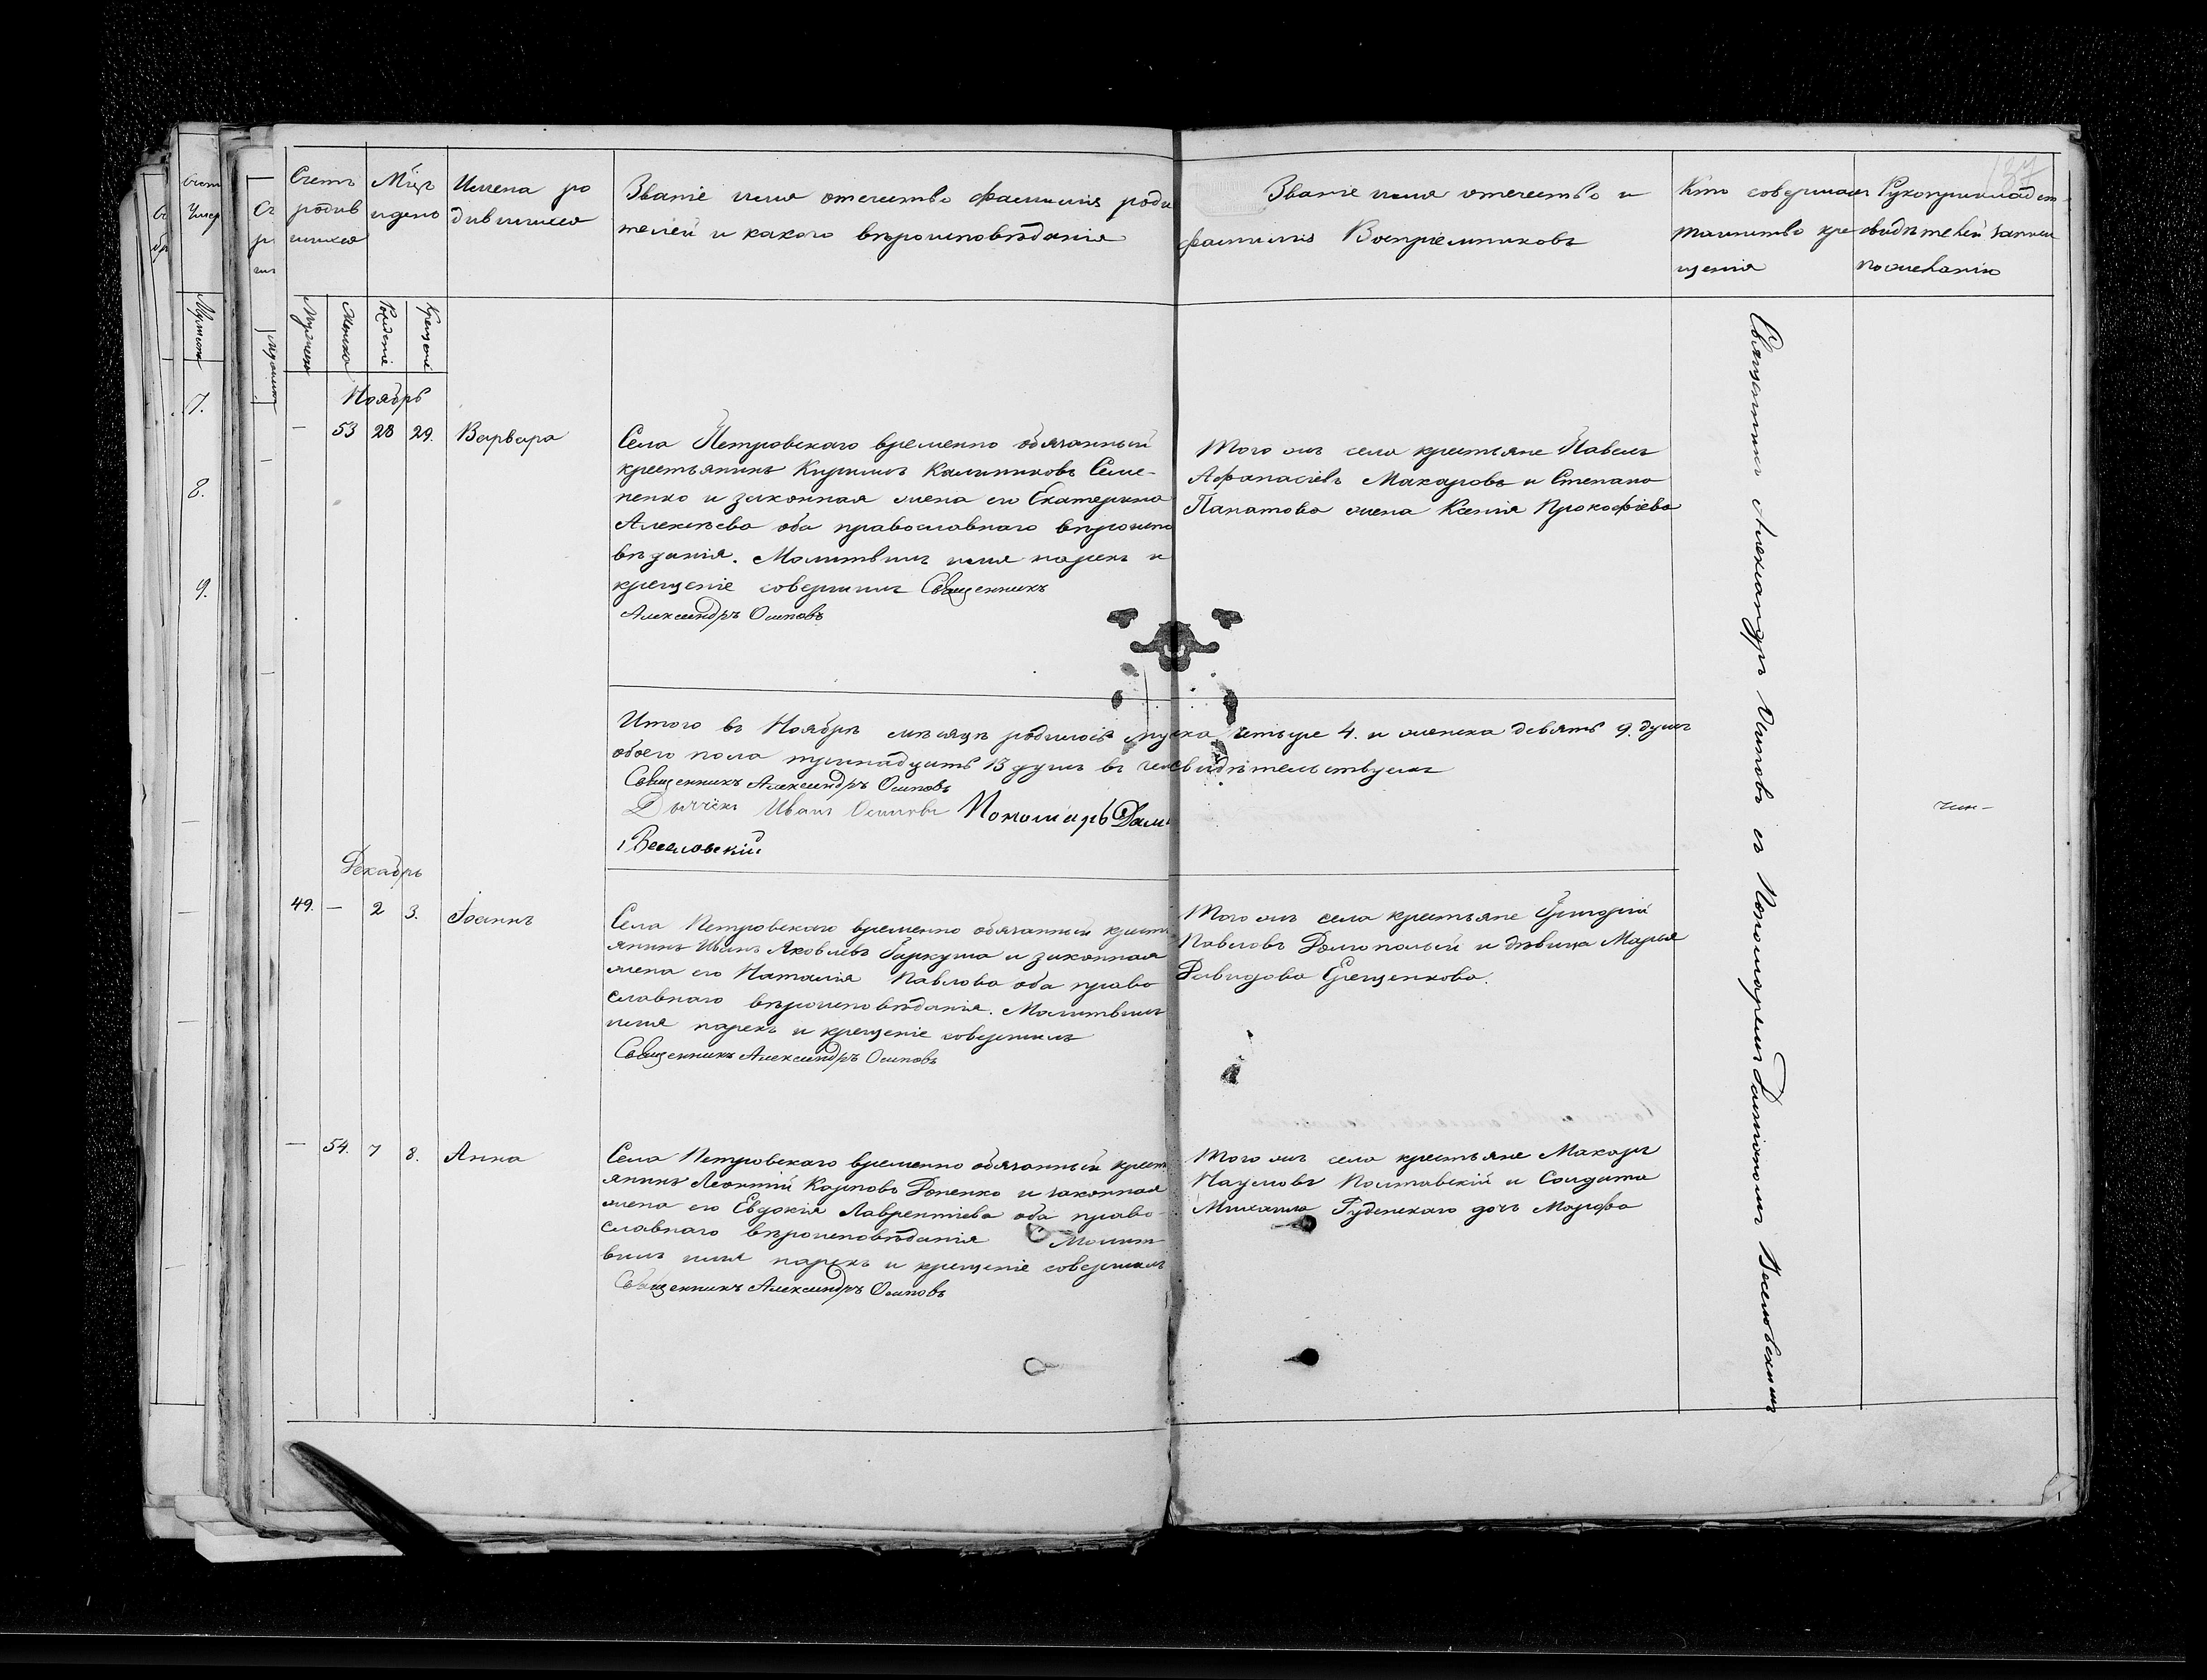 Счетъ родив шихся
Мцъ и день
Имена ро дившихся
Званіе имя отечество фамилія роди
телей и какого вѣроисповѣданія
Званіе имя отечество и
фамилія Воспріемниковъ
Кто совершалъ
таинство кре
щенія
Рукоприкладст
свидѣтелей записи
по желанію
137
Мужска
Женска
Рожденіе
Крещеніе
Ноябрь
— 53 28 29. Варвара
Села Петровскаго временно обязанный
крестьянинъ Кирилъ Калиниковъ Семе-
ненко и законная жена его Екатерина
Алексѣева оба православнаго вѣроиспо
вѣданія. Молитвилъ имя нарекъ и
крещеніе совершилъ Священникъ
Александръ Осиповъ
Того жъ села крестьяне Павелъ
Афанасіевъ Макаровъ и Степана
Панатова жена Ксенія Прокофіева
Итого въ Ноябрѣ мѣсяцѣ родилось мужска четыре 4. и женска девять 9. душъ
обоего пола тринадцать 13 душъ въ чемъ свидѣтельствуемъ
Священникъ Александръ Осиповъ
Дьячекъ Иванъ Осиповъ Пономарь
Веселовскій
Декабрь
49. — 2 3. Іоаннъ
Села Петровскаго временно обязанный кресть
янинъ Иванъ Яковлевъ Гаркуша и законная
жена его Наталія Павлова оба право
славнаго вѣроисповѣданія. Молитвилъ
имя нарекъ и крещеніе совершилъ
Священникъ Александръ Осиповъ
Того жъ села крестьяне Григорій
Павловъ Долгополый и дѣвица Марья
Давидова Ерещенкова.
— 54. 7 8. Анна
Села Петровскаго временно обязанный кресть
янинъ Леонтій Карповъ Доненко и законная
жена его Евдокія Лаврентіева оба право
славнаго вѣроисповѣданія Молит
вилъ имя нарекъ и крещеніе совершилъ
Священникъ Александръ Осиповъ
Того жъ села крестьяне Макаръ
Наумовъ Полтавскій и Солдата
Михаила Руденскаго дочь Марфа
Священникъ Александръ Осиповъ съ Пономаремъ Веселовскимъ
7.
8.
9.